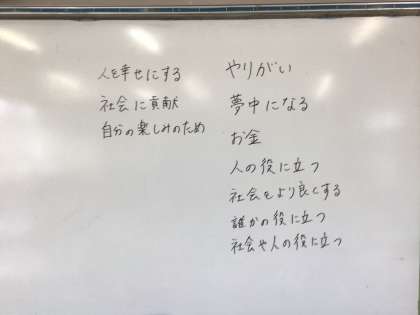 人を幸せにする
社会に貢献
自分の楽しみのため
やりがい
夢中になる
お金
人の役に立つ
社会をより良くする
誰かの役に立つ
社会や人の役に立つ